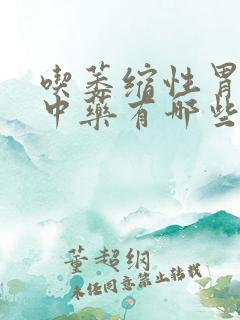 喫萎缩性胃
中藥有哪些
董超纲
未经同意禁止转载